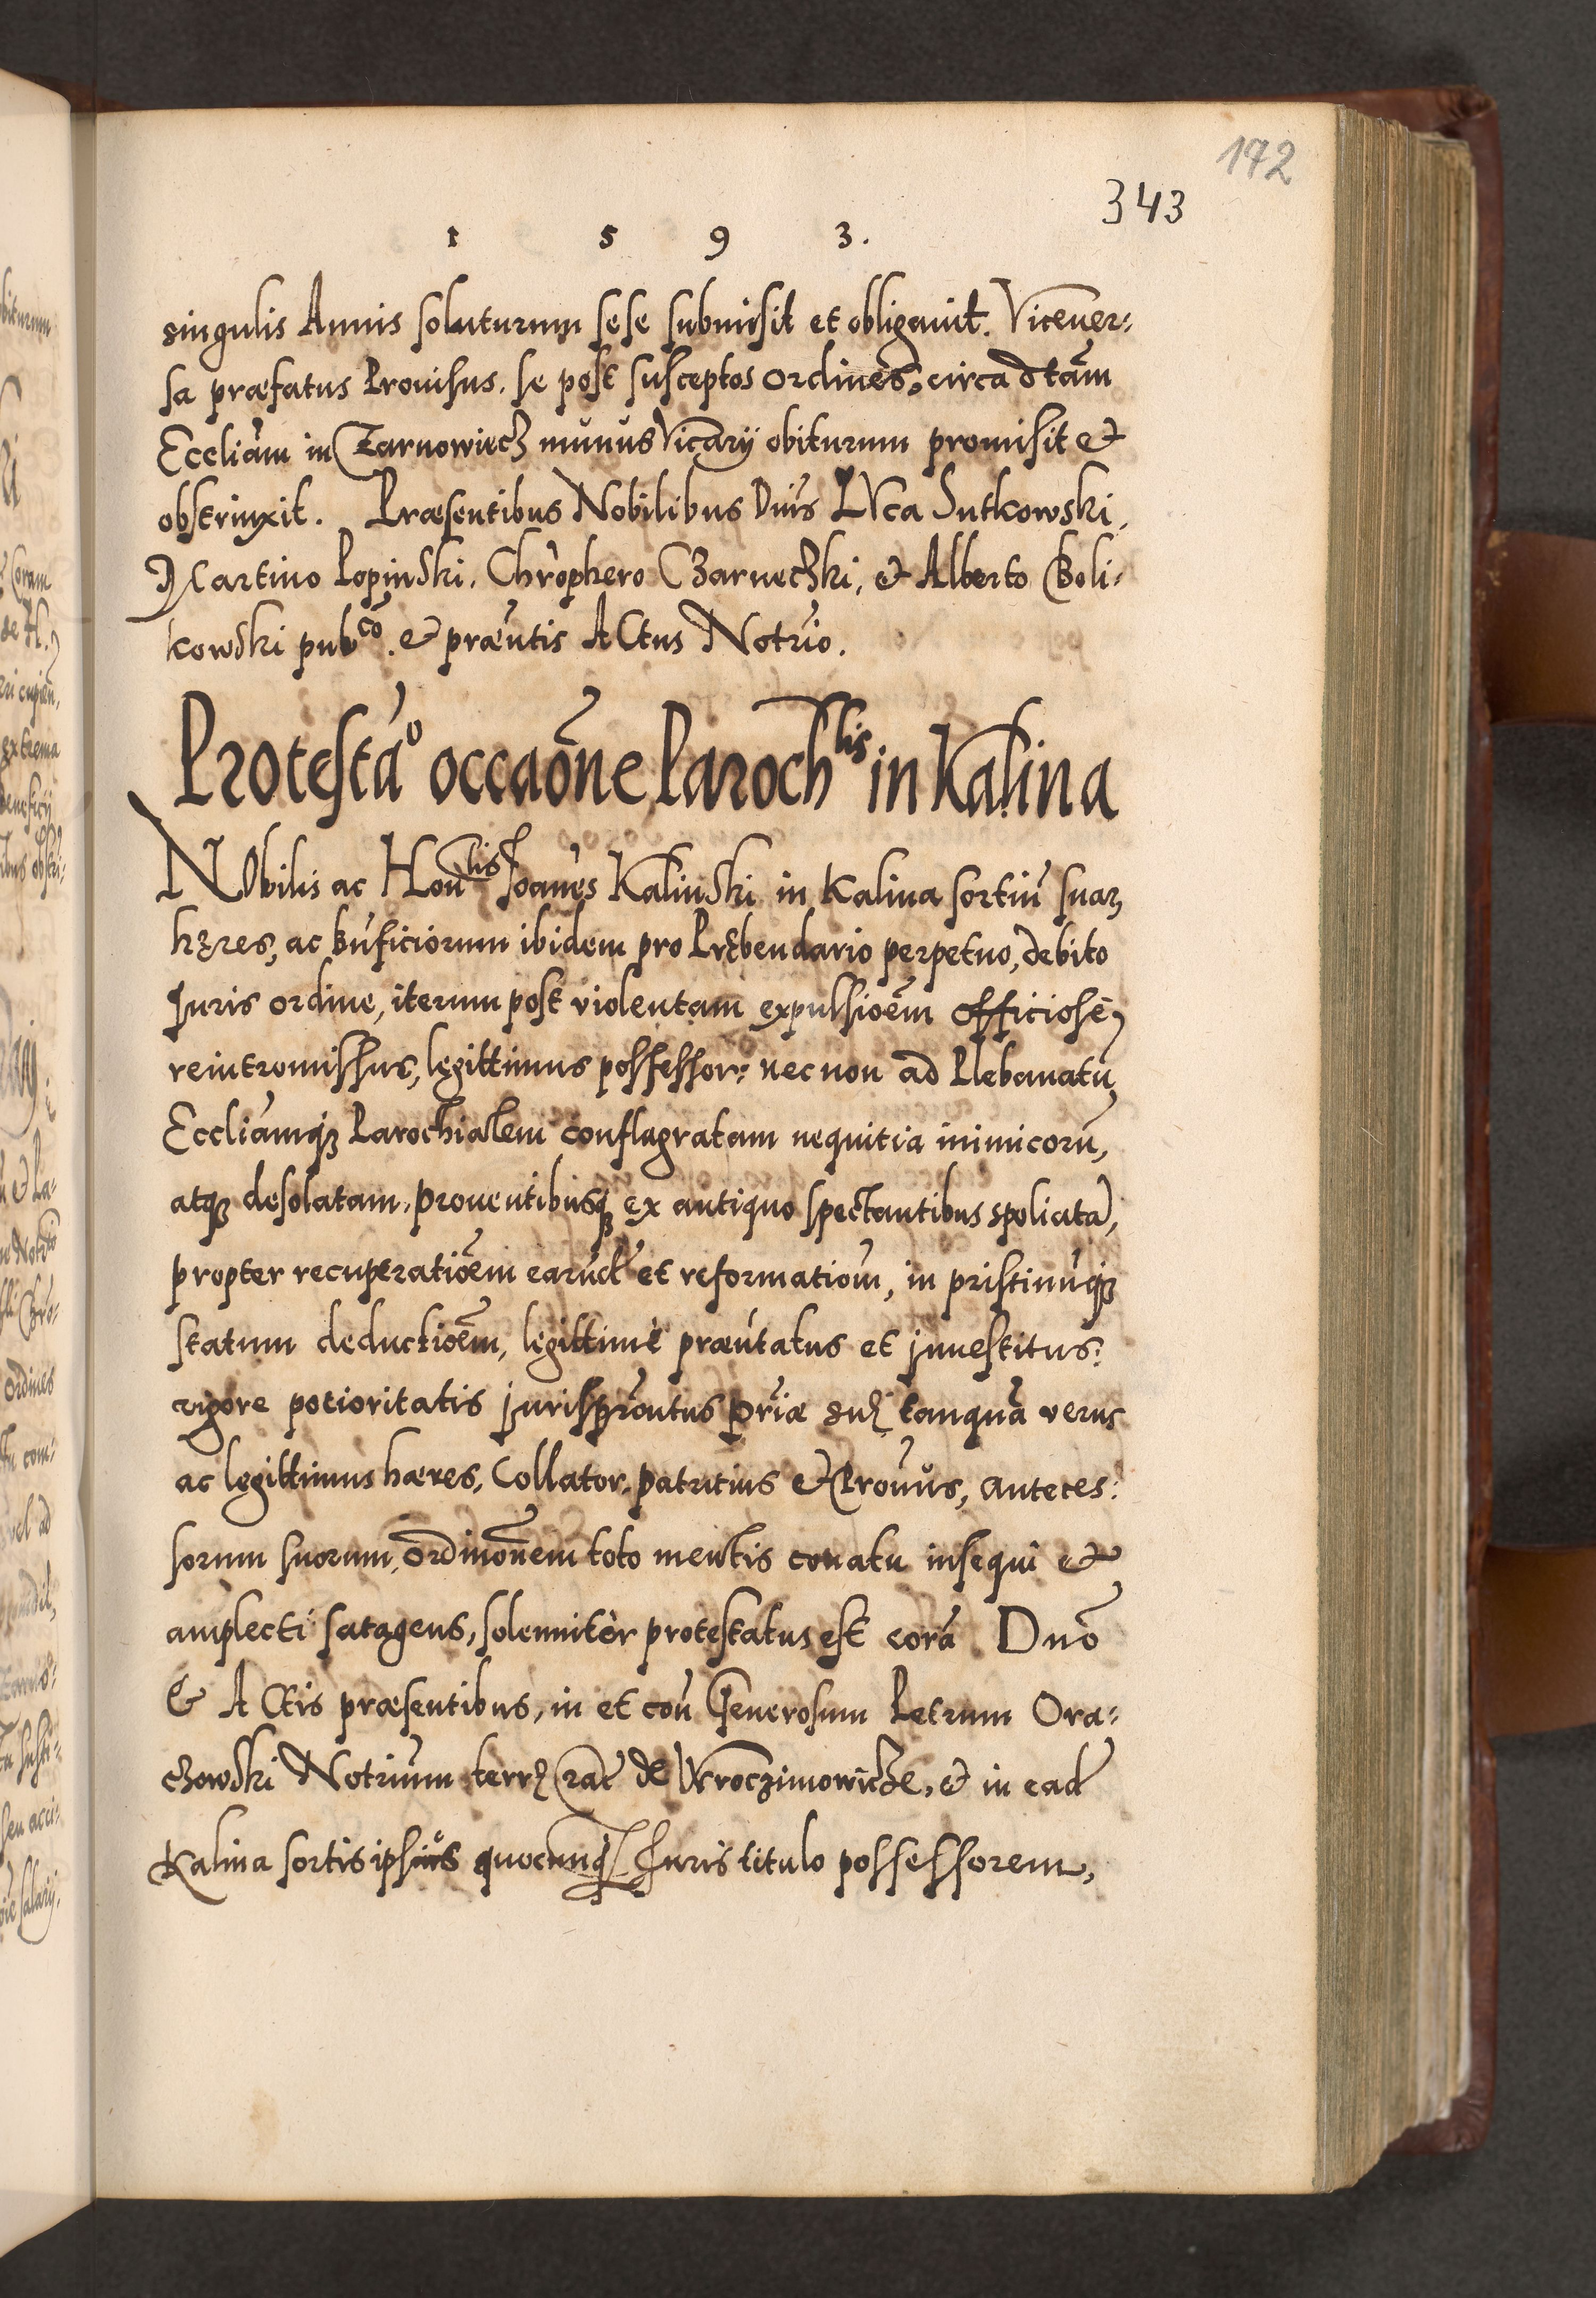 172
343
1 5 9 3.
singulis Annis soluturum sese submisit et obligauit. Viceuer:
sa præfatus Prouisus. se post susceptos ordines, circa dtam
Eccliam in Tarnowiecz munus Vicarÿ obiturum promisit et
obstrinxit. Præsentibus Nobilibus Dnis LVca Sutkowski,
Martino Lopinski. Chrophero Czarneczki, et Alberto Boli:
kowski pubco. et præntis ACtus Notrio.
Protestao occaone Parochlis in Kalina
NObilis ac Honlis Joanes Kalinski in Kalina sortiu suarz
hęres, ac bnficiorum ibidem pro Prębendario perpetuo, debito
Juris ordine, iterum post violentam expulsioem officiose
reintromissus, legittimus possessor: nec non ad Plebanatu
Eccliamqz Parochialem conflagratam nequitia inimicoru,
atqz desolatam. prouentibusqz ex antiquo spectantibus spoliata,
propter recuperatioem earud et reformatiom, in pristinuqz
statum deductioem, legittime præntatus et jnuestitus:
vigore potioritatis juris prontus priæ tanqua verus
ac legittimus hæres, Collator. patritius et Prouus, anteces:
sorum suorum, ordinonem toto mentis conatu insequi et
amplecti satagens, solenniter protestatus est cora Dno
& ACtis præsentibus, in et con Generosum Petrum Ora:
chowski Notrium terr Crac de Wroczimowicze, et in ead
Kalina sortis ipsius quocunq Juris titulo possessorem,